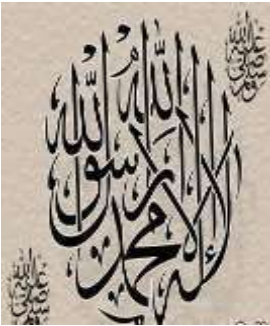 لا إله إلا الله محمد رسول الله
صلى الله عليه وسلم
صلى الله عليه وسلم